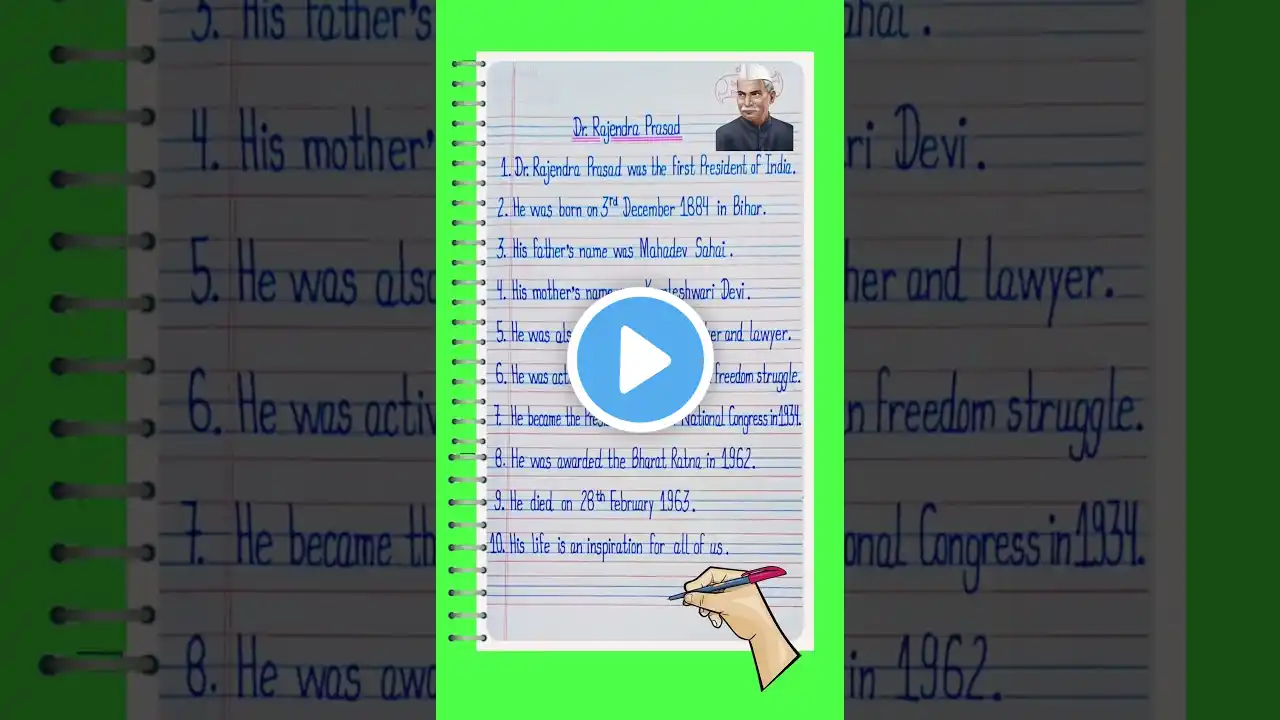 Dr. Rajendra Prasad
1. Dr. Rajendra Prasad was the first President of India.
2. He was born on 3rd December 1884 in Bihar.
3. His father's name was Mahadev Sahai.
4. His mother's name Devi.
5. He was and lawyer.
6. He was freedom struggle.
7. He became the National Congress in 1934.
8. He was awarded the Bharat Ratna in 1962.
9. He died on 28th February 1963.
10. His life is an inspiration for all of us.